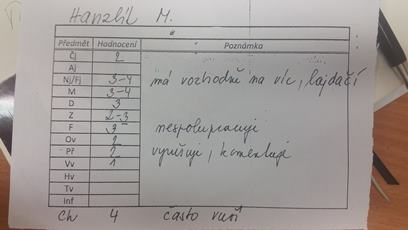 Hanzlík M.
Předmět Hodnocení Poznámka
Čj 2
Aj
Nj/Fj 3-4 má rozhodně na víc, lajdačí
M 3-4
D 3
Z 2-3
F 3 nespolupracuje
Ov 2
Př 2 vyrušuje, komentuje
Vv 1
Hv
Tv
Inf
Ch 4 často ruší